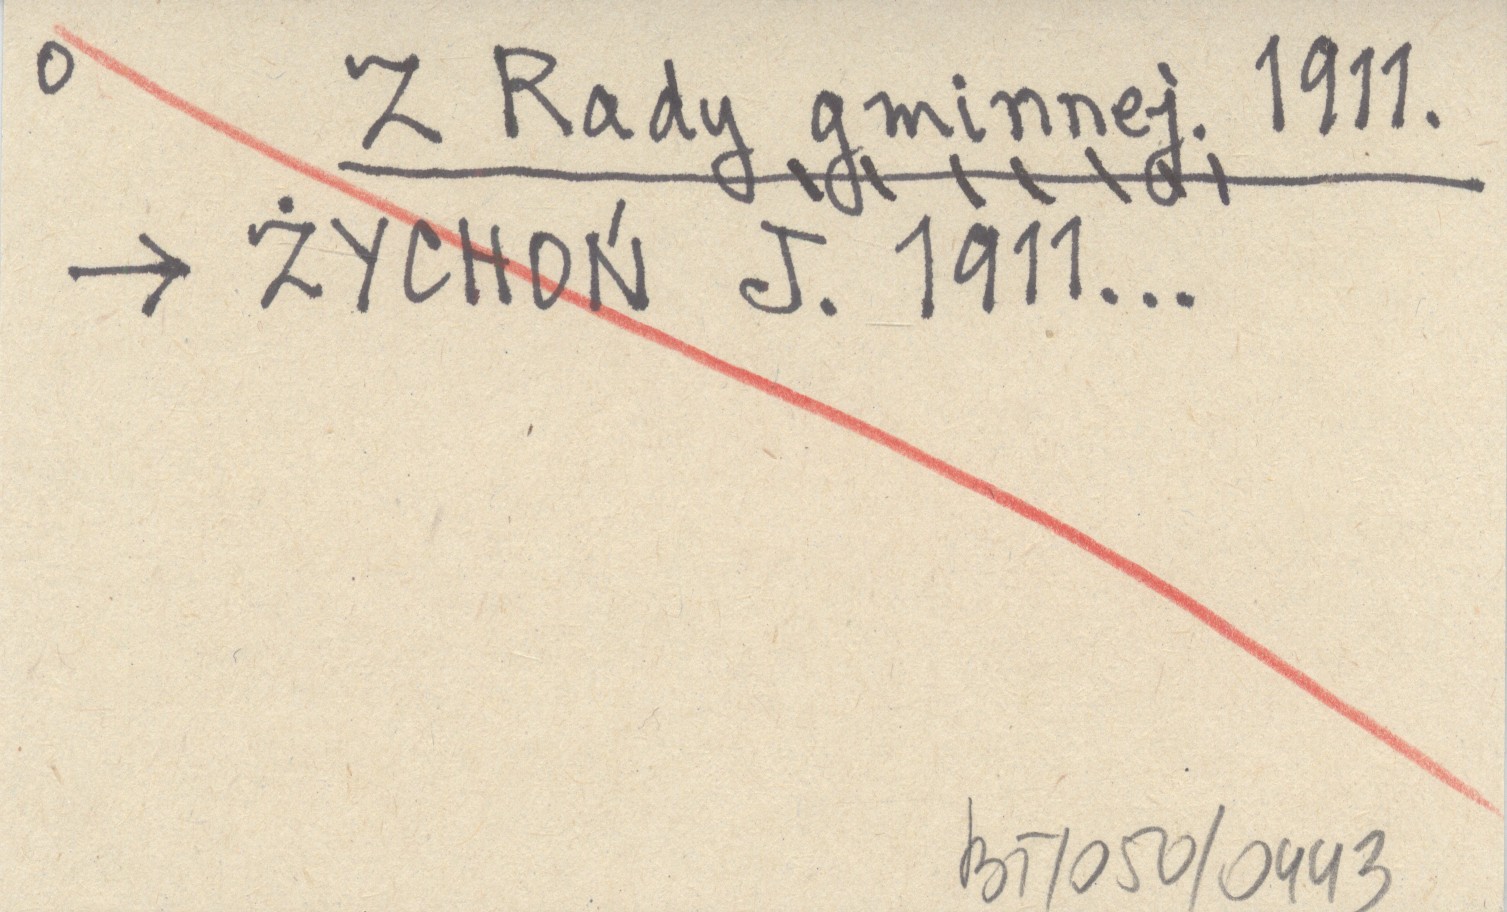 O Z Rady gminnej. 1911.
→ ŻYCHOŃ J. 1911...
BT/050/0443